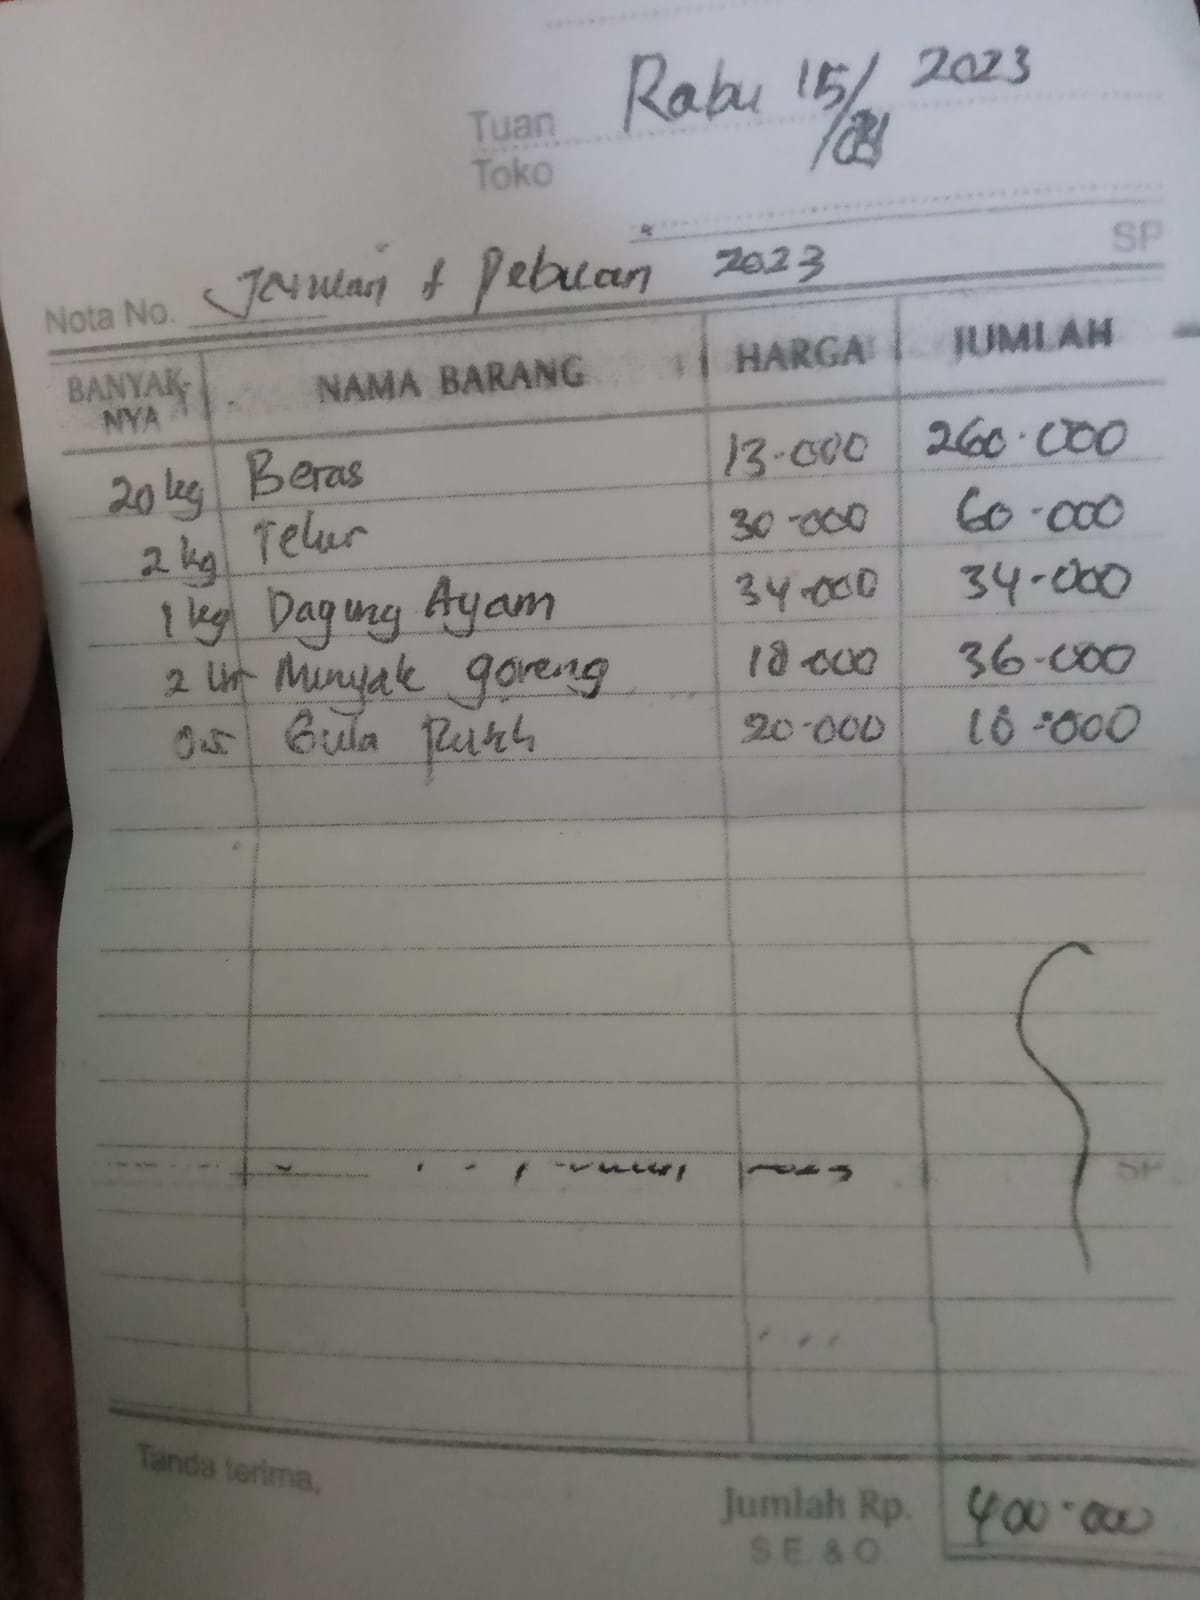 Rabu 15/ 2023
Tuan
Toko
SP
Nota No. Januari & Pebuan 2023
BANYAK-NYA NAMA BARANG HARGA JUMLAH
20 kg Beras 13.000 260.000
2 kg Telur 30.000 60.000
1 kg Daging Ayam 34.000 34.000
2 Ltr Minyak goreng 18.000 36.000
0.5 Gula 20.000 10.000
SP
Tanda terima,
Jumlah Rp. 400.000
S E & O